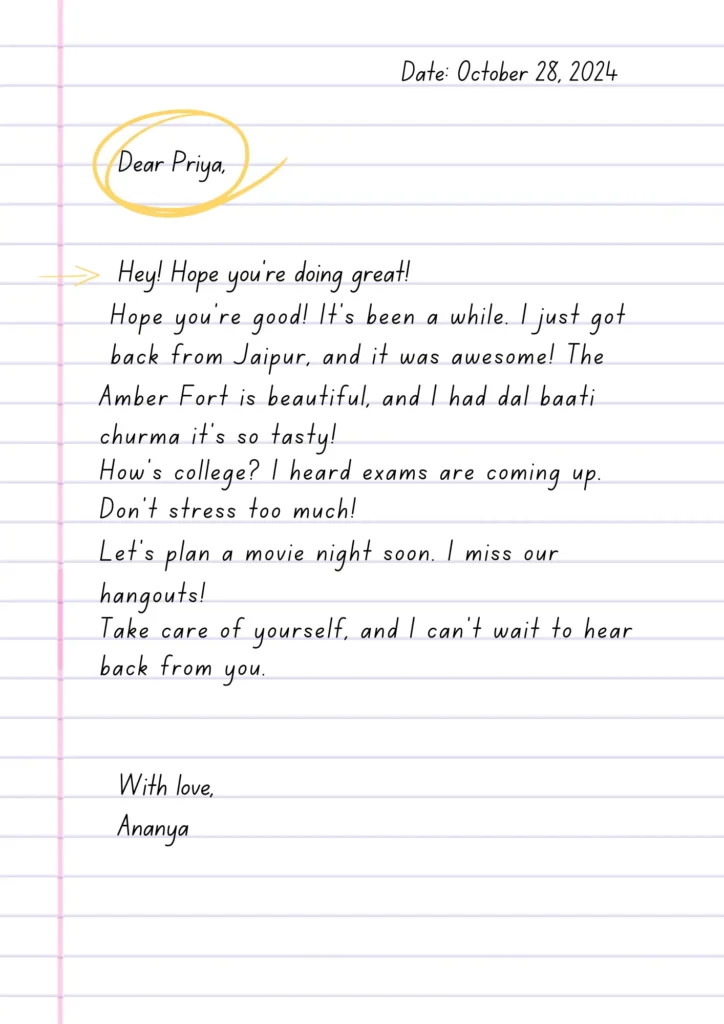 Date: October 28, 2024
Dear Priya,
Hey! Hope you're doing great!
Hope you're good! It's been a while. I just got
back from Jaipur, and it was awesome! The
Amber Fort is beautiful, and I had dal baati
churma it's so tasty!
How's college? I heard exams are coming up.
Don't stress too much!
Let's plan a movie night soon. I miss our
hangouts!
Take care of yourself, and I can't wait to hear
back from you.
With love,
Ananya